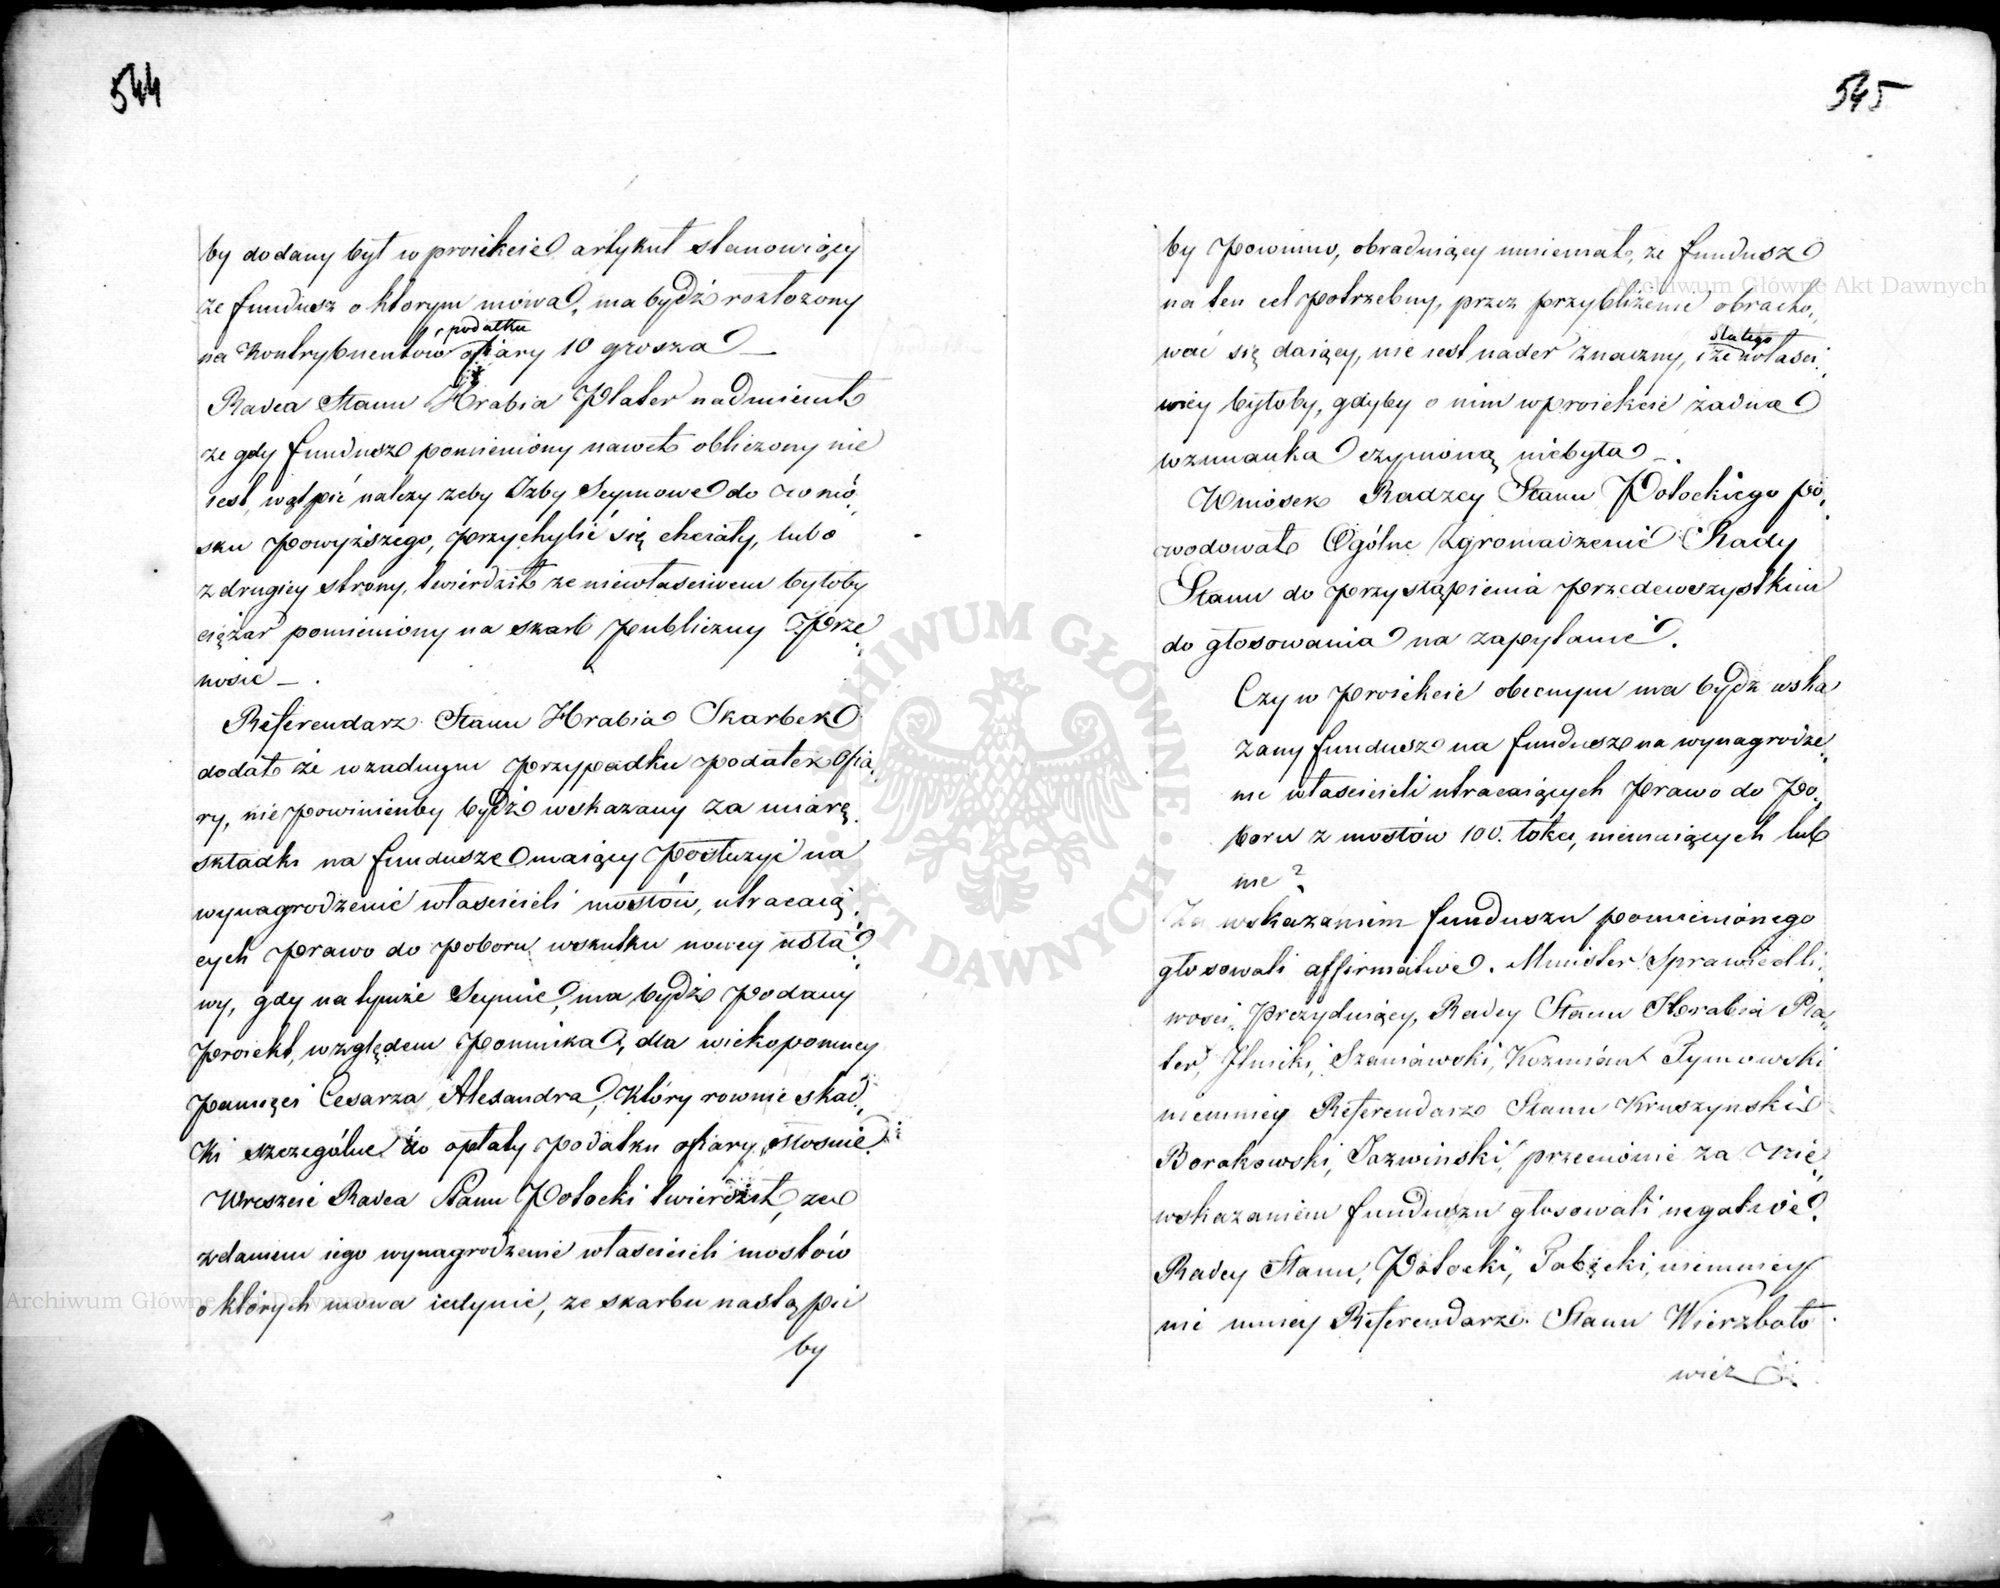 544
by dodany był w proiekcie artykuł stanowiący
że fundusz o ktorym mowa, ma bydź rozłożony
podatku
na Kontrybuentów ofiary 10 grosza —
Radca Stanu Hrabia Plater nadmienił
że gdy fundusz pomieniony nawet obliczony nie
iest, wątpić należy żeby Izby Seymowe do wnio„
sku powyższego, przychylić się chciały, lubo
z drugiey strony, twierdził że niewłaściwem byłoby
ciężar pomieniony na skarb publiczny prze„
nosić —.
Referendarz Stanu Hrabia Skarbek
dodał że w żadnym przypadku podatek ofia„
ry, nie powinienby bydź wskazany za miarę
składki na fundusz maiący posłużyć na
wynagrodzenie właścicieli mostów, utracaią„
cych prawo do poboru wskutku nowey usta„
wy, gdy na tymże Seymie, ma bydź podany
proiekt, względem pomnika, dla wiekopomney
pamięci Cesarza Alesandra, który rownie skład„
ki szczególne do opłaty podatku ofiary stosuie.
Wreszcie Radca Stanu Potocki twierdził, że
zdaniem iego wynagrodzenie właścicieli mostów
o których mowa iedynie, ze skarbu nastąpić
by
545
by powinno, obraduiący mniemał, że fundusz
na ten cel potrzebny, przez przybliżenie obracho„
stałego
wać się daiący, nie iest nader znaczny, i że właści„
wiey byłoby, gdyby o nim w proiekcie żadna
wzmianka czynioną niebyła —.
Wniosek Radzcy Stanu Potockiego po„
wodował Ogólne Zgromadzenie Rady
Stanu do przystąpienia przedewszystkim
do głosowania na zapytanie.
Czy w proiekcie obecnym ma bydź wska
zany fundusz na fundusz na wynagrodze„
nie właścicieli utracaiących prawo do po„
boru z mostów 100. łokci, niemaiących lub
nie?
Za wskazaniem funduszu pomienionego
głosowali affirmative. Minister Sprawiedli„
wości Prezyduiący, Radcy Stanu Hrabia Pla„
ter, Ilnicki, Szaniawski, Kozmian Tymowski
niemniey Referendarze Stanu Kruszynski
Borakowski, Jazwinski, przeciwnie za nie„
wskazaniem funduszu głosowali negative.
Radcy Stanu, Potocki, niemniey
nie mniey Referendarze Stanu Wierzboło
wicz
Archiwum Główne Akt Dawnych
Archiwum Główne Akt Dawnych
ARCHIWUM GŁÓWNE AKT DAWNYCH